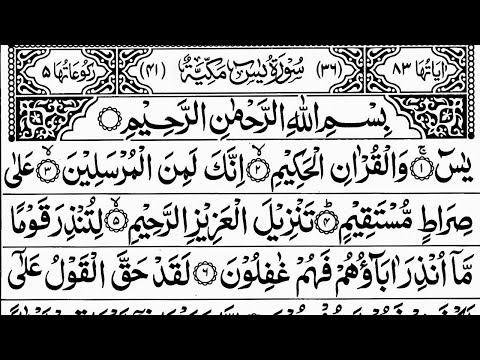 اٰيَاتُهَا ٨٣ (٣٦) سُوْرَةُ يٰسٓ مَكِّيَّةٌ (٤١) رُكُوْعَاتُهَا ٥
بِسْمِ اللّٰهِ الرَّحْمٰنِ الرَّحِيْمِ
يٰسٓ ۚ‏﴿١﴾ وَالْقُرْاٰنِ الْحَكِيْمِ ۙ‏﴿٢﴾ اِنَّكَ لَمِنَ الْمُرْسَلِيْنَ ۙ‏﴿٣﴾ عَلٰى
صِرَاطٍ مُّسْتَقِيْمٍ ؕ‏﴿٤﴾ تَنْزِيْلَ الْعَزِيْزِ الرَّحِيْمِ ۙ‏﴿٥﴾ لِتُنْذِرَ قَوْمًا
مَّاۤ اُنْذِرَ اٰبَآؤُهُمْ فَهُمْ غٰفِلُوْنَ ﴿٦﴾ لَقَدْ حَقَّ الْقَوْلُ عَلٰٓى